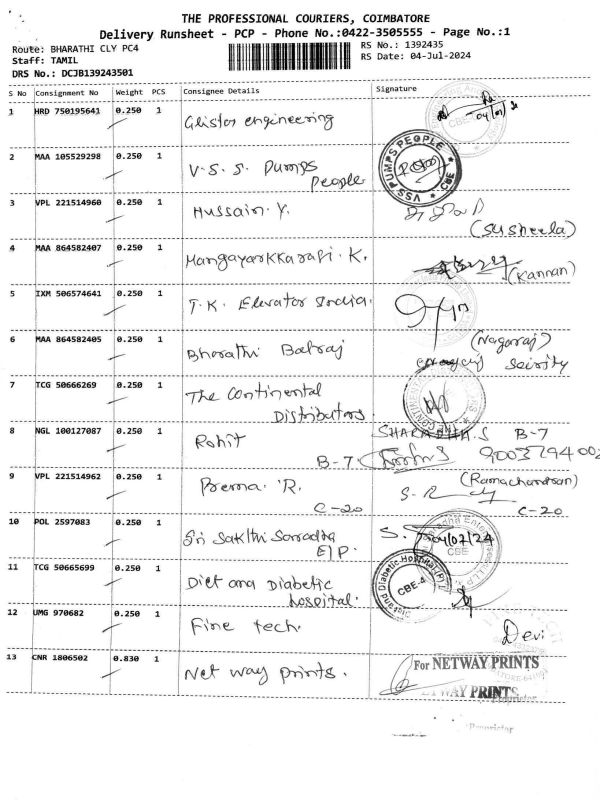 THE PROFESSIONAL COURIERS, COIMBATORE
Delivery Runsheet - PCP - Phone No.:0422-3505555 - Page No.:1
Route: BHARATHI CLY PC4
RS No.: 1392435
Staff: TAMIL
RS Date: 04-Jul-2024
DRS No.: DCJB139243501
S No Consignment No Weight PCS Consignee Details Signature
1 HRD 750195641 0.250 1 Glistor engineering
2 MAA 105529298 0.250 1 V. S. S. Pumps People
VSS PUMPS PEOPLE CBE
3 VPL 221514960 0.250 1 Hussain. Y.
(Susheela)
4 MAA 864582407 0.250 1 Mangayarkkarasi. K.
(Kannan)
5 IXM 506574641 0.250 1 T. K. Elevator India.
6 MAA 864582405 0.250 1 Bharathi Balraj
(Nagaraj)
7 TCG 50666269 0.250 1 The Continental
Distributors.
8 NGL 100127087 0.250 1 Rohit B-7
SHARADHA.S B-7
9 VPL 221514962 0.250 1 Prema. R. C-20
(Ramachandran)
C-20
10 POL 2597083 0.250 1 Sri Sakthi Saradha
E/P.
04/07/24
CBE
11 TCG 50665699 0.250 1 Diet and Diabetic
hospital.
CBE-4
12 UMG 970682 0.250 1 Fine tech.
Devi
13 CNR 1806502 0.830 1 Net way prints.
For NETWAY PRINTS
NETWAY PRINTS
Proprietor
Proprietor